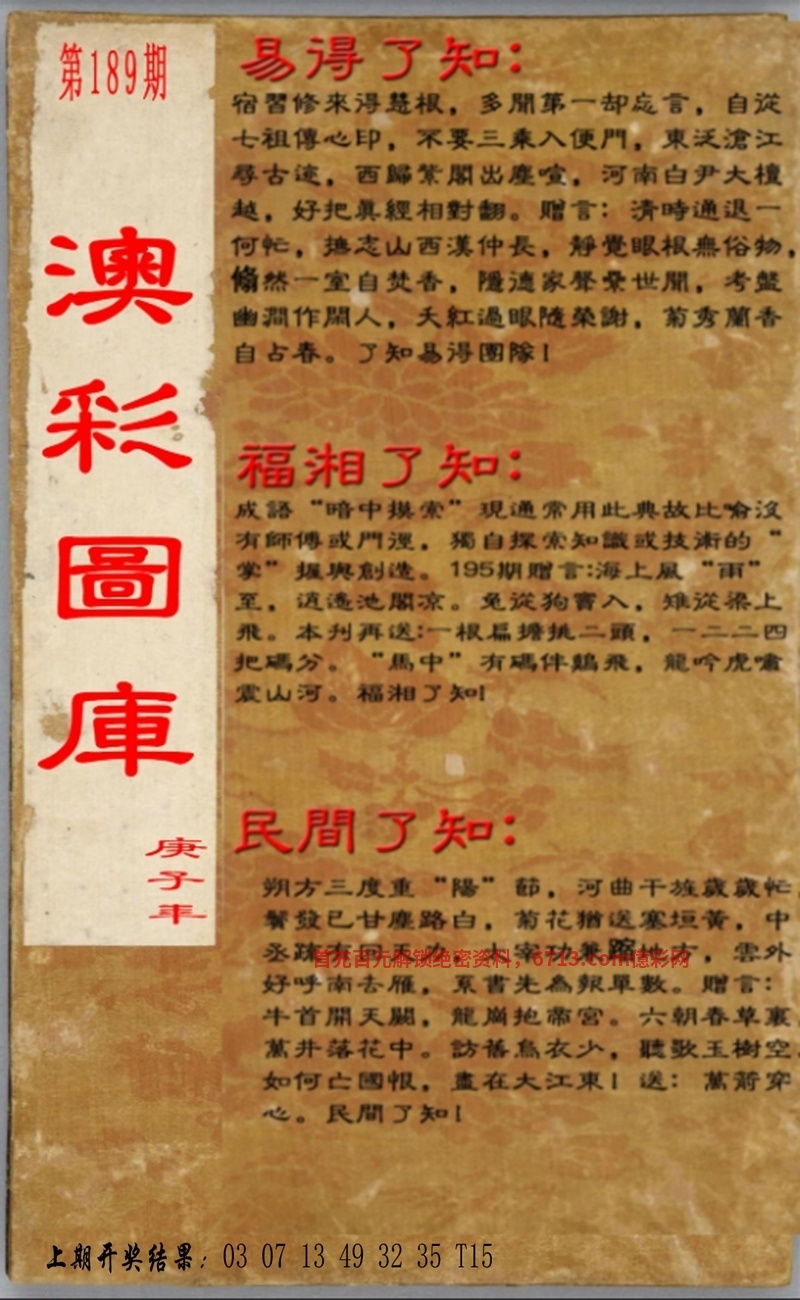 第189期
澳彩圖庫
庚子年
易得了知：
宿習修來得慧根，多聞第一却忘言，自從
七祖傳心印，不要三乘入便門，東泛滄江
尋古迹，西歸紫閣出塵喧，河南白尹大檀
越，好把眞經相對翻。贈言：清時通退一
何忙，摭志山西漢仲長，靜覺眼根無俗物，
翛然一室自焚香，隱德家聲棄世聞，考盤
幽澗作閑人，夭紅過眼隨榮謝，菊秀蘭香
自占春。了知易得團隊！
福湘了知：
成語“暗中摸索”現通常用此典故比喻沒
有師傅或門逕，獨自探索知識或技術的“
掌”握與創造。195期贈言:海上風“雨”
至，逍遙池閣凉。兔從狗竇入，雉從梁上
飛。本刊再送:一根扁擔挑二頭，一二二四
把碼分。“馬中”有碼伴鷄飛，龍吟虎嘯
震山河。福湘了知!
民間了知：
朔方三度重“陽”節，河曲干旌歲歲忙
鬢發已甘塵路白，菊花猶送塞垣黃，中
丞疏有回天力，太宰功兼蹠地方，雲外
首充百元解锁绝密资料，6713.com億彩网
好呼南去雁，系書先為報單數。贈言：
牛首開天闕，龍崗抱帝宮。六朝春草裏
萬井落花中。訪舊烏衣少，聽歌玉樹空
如何亡國恨，盡在大江東！送：萬箭穿
心。民間了知！
上期开奖结果：03 07 13 49 32 35 T15